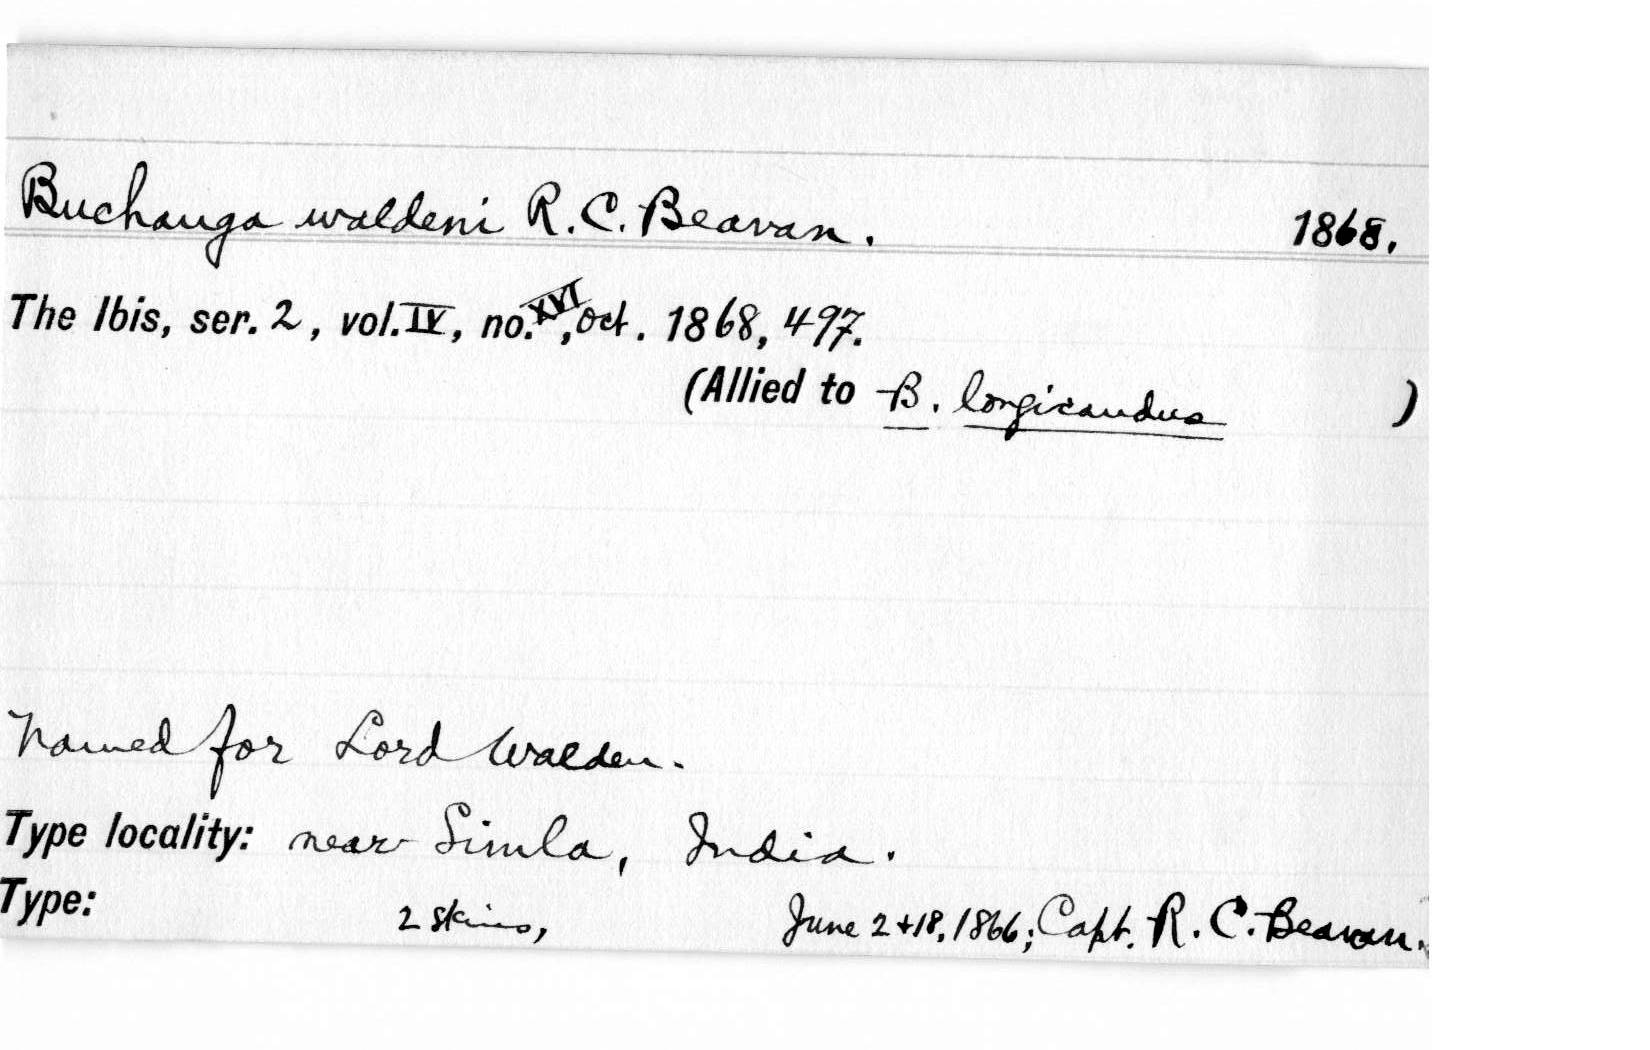 Buchanga waldeni R. C. Beavan. 1868.
The Ibis, ser. 2, vol. IV, no. XVI, Oct. 1868, 497.
(Allied to B. longicaudus )
Named for Lord Walden.
Type locality: near Simla, India.
Type: 2 skins, June 2+18, 1866; Capt. R. C. Beavan.